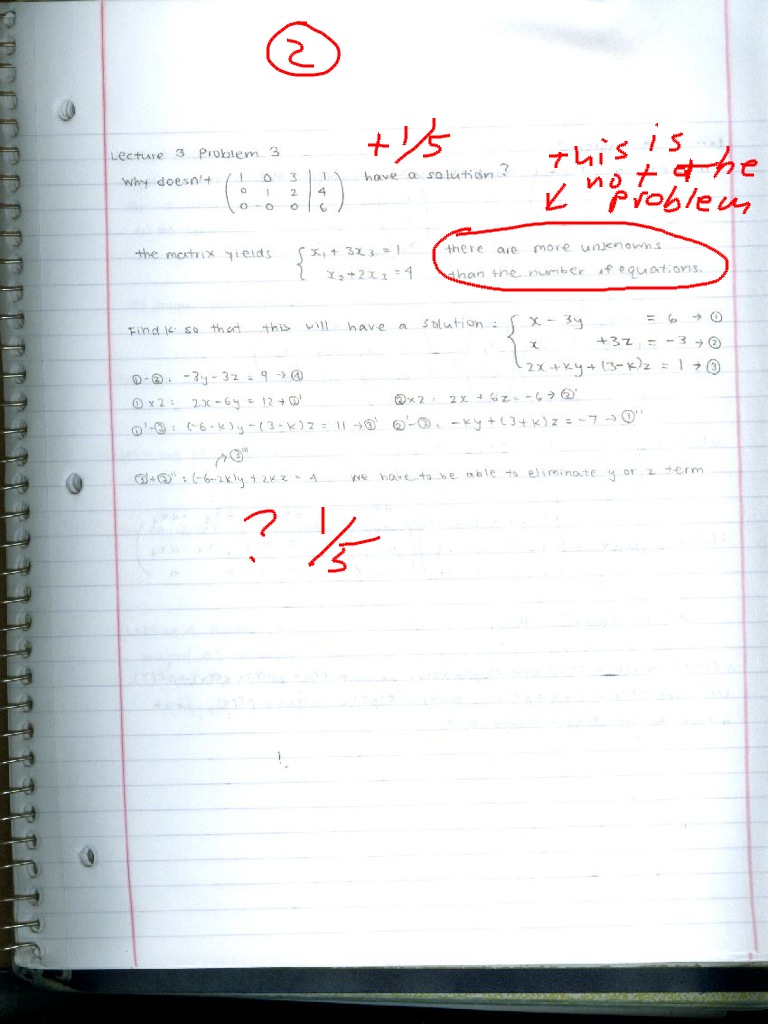 2
Lecture 3 Problem 3
+1/5
this is
not the
problem
Why doesn't ( 1 0 3 | 1 have a solution?
0 1 2 | 4
0 0 0 | 6 )
the matrix yields { x₁ + 3x₃ = 1
x₂ + 2x₃ = 4
there are more unknowns
than the number of equations.
Find k so that this will have a solution : { x - 3y = 6 → ①
x +3z = -3 → ②
2x + ky + (3-k)z = 1 → ③
①-②: -3y-3z = 9 → ④
①x2: 2x-6y = 12 → ①' ②x2: 2x + 6z = -6 → ②'
①'-③: (-6-k)y-(3-k)z = 11 → ③' ②'-③: -ky+(3+k)z = -7 → ③''
→ ③'''
③'+③'': (-6-2k)y + 2kz = 4 we have to be able to eliminate y or z term
? 1/5